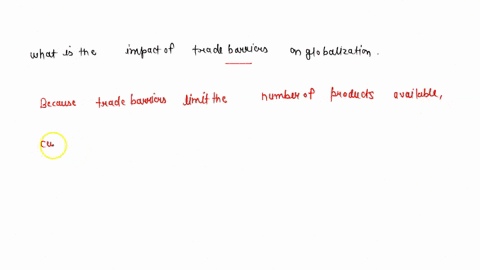 what is the impact of trade barriers on globalization.
Because trade barriers limit the number of products available,
cu